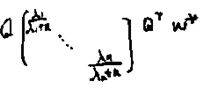 Q [ λ₁/(λ₁+α) ⋱ λₙ/(λₙ+α) ] Qᵀ w*